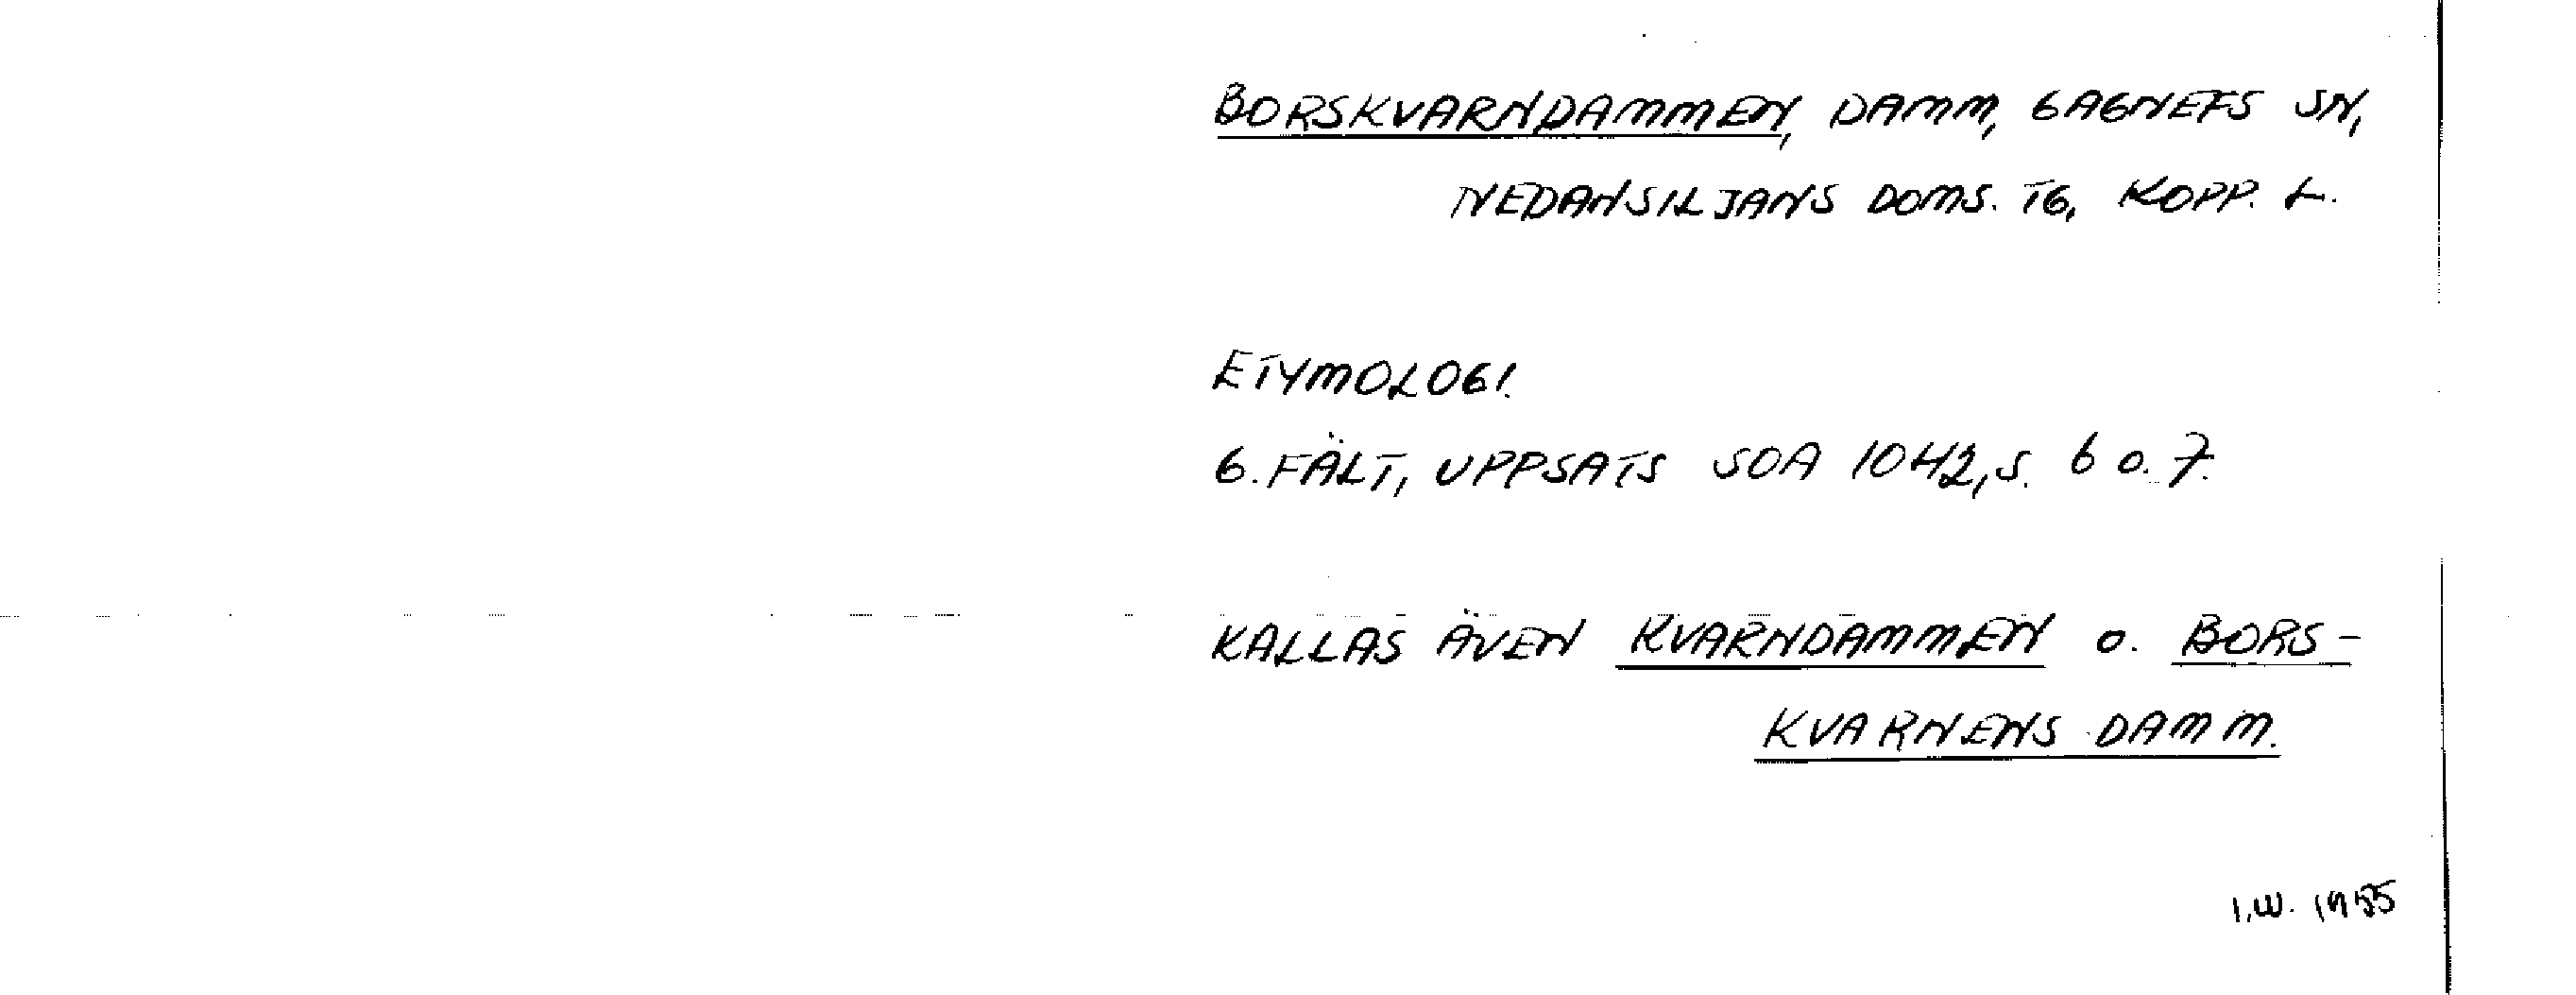 BORSKVARNDAMMEN, DAMM, GAGNEFS SN,
NEDANSILJANS DOMS. TG, KOPP. L.
ETYMOLOGI.
G. FÄLT, UPPSATS SOA 1042, S. 6 o. 7.
KALLAS ÄVEN KVARNDAMMEN o. BORS-
KVARNENS DAMM.
I.W. 1955